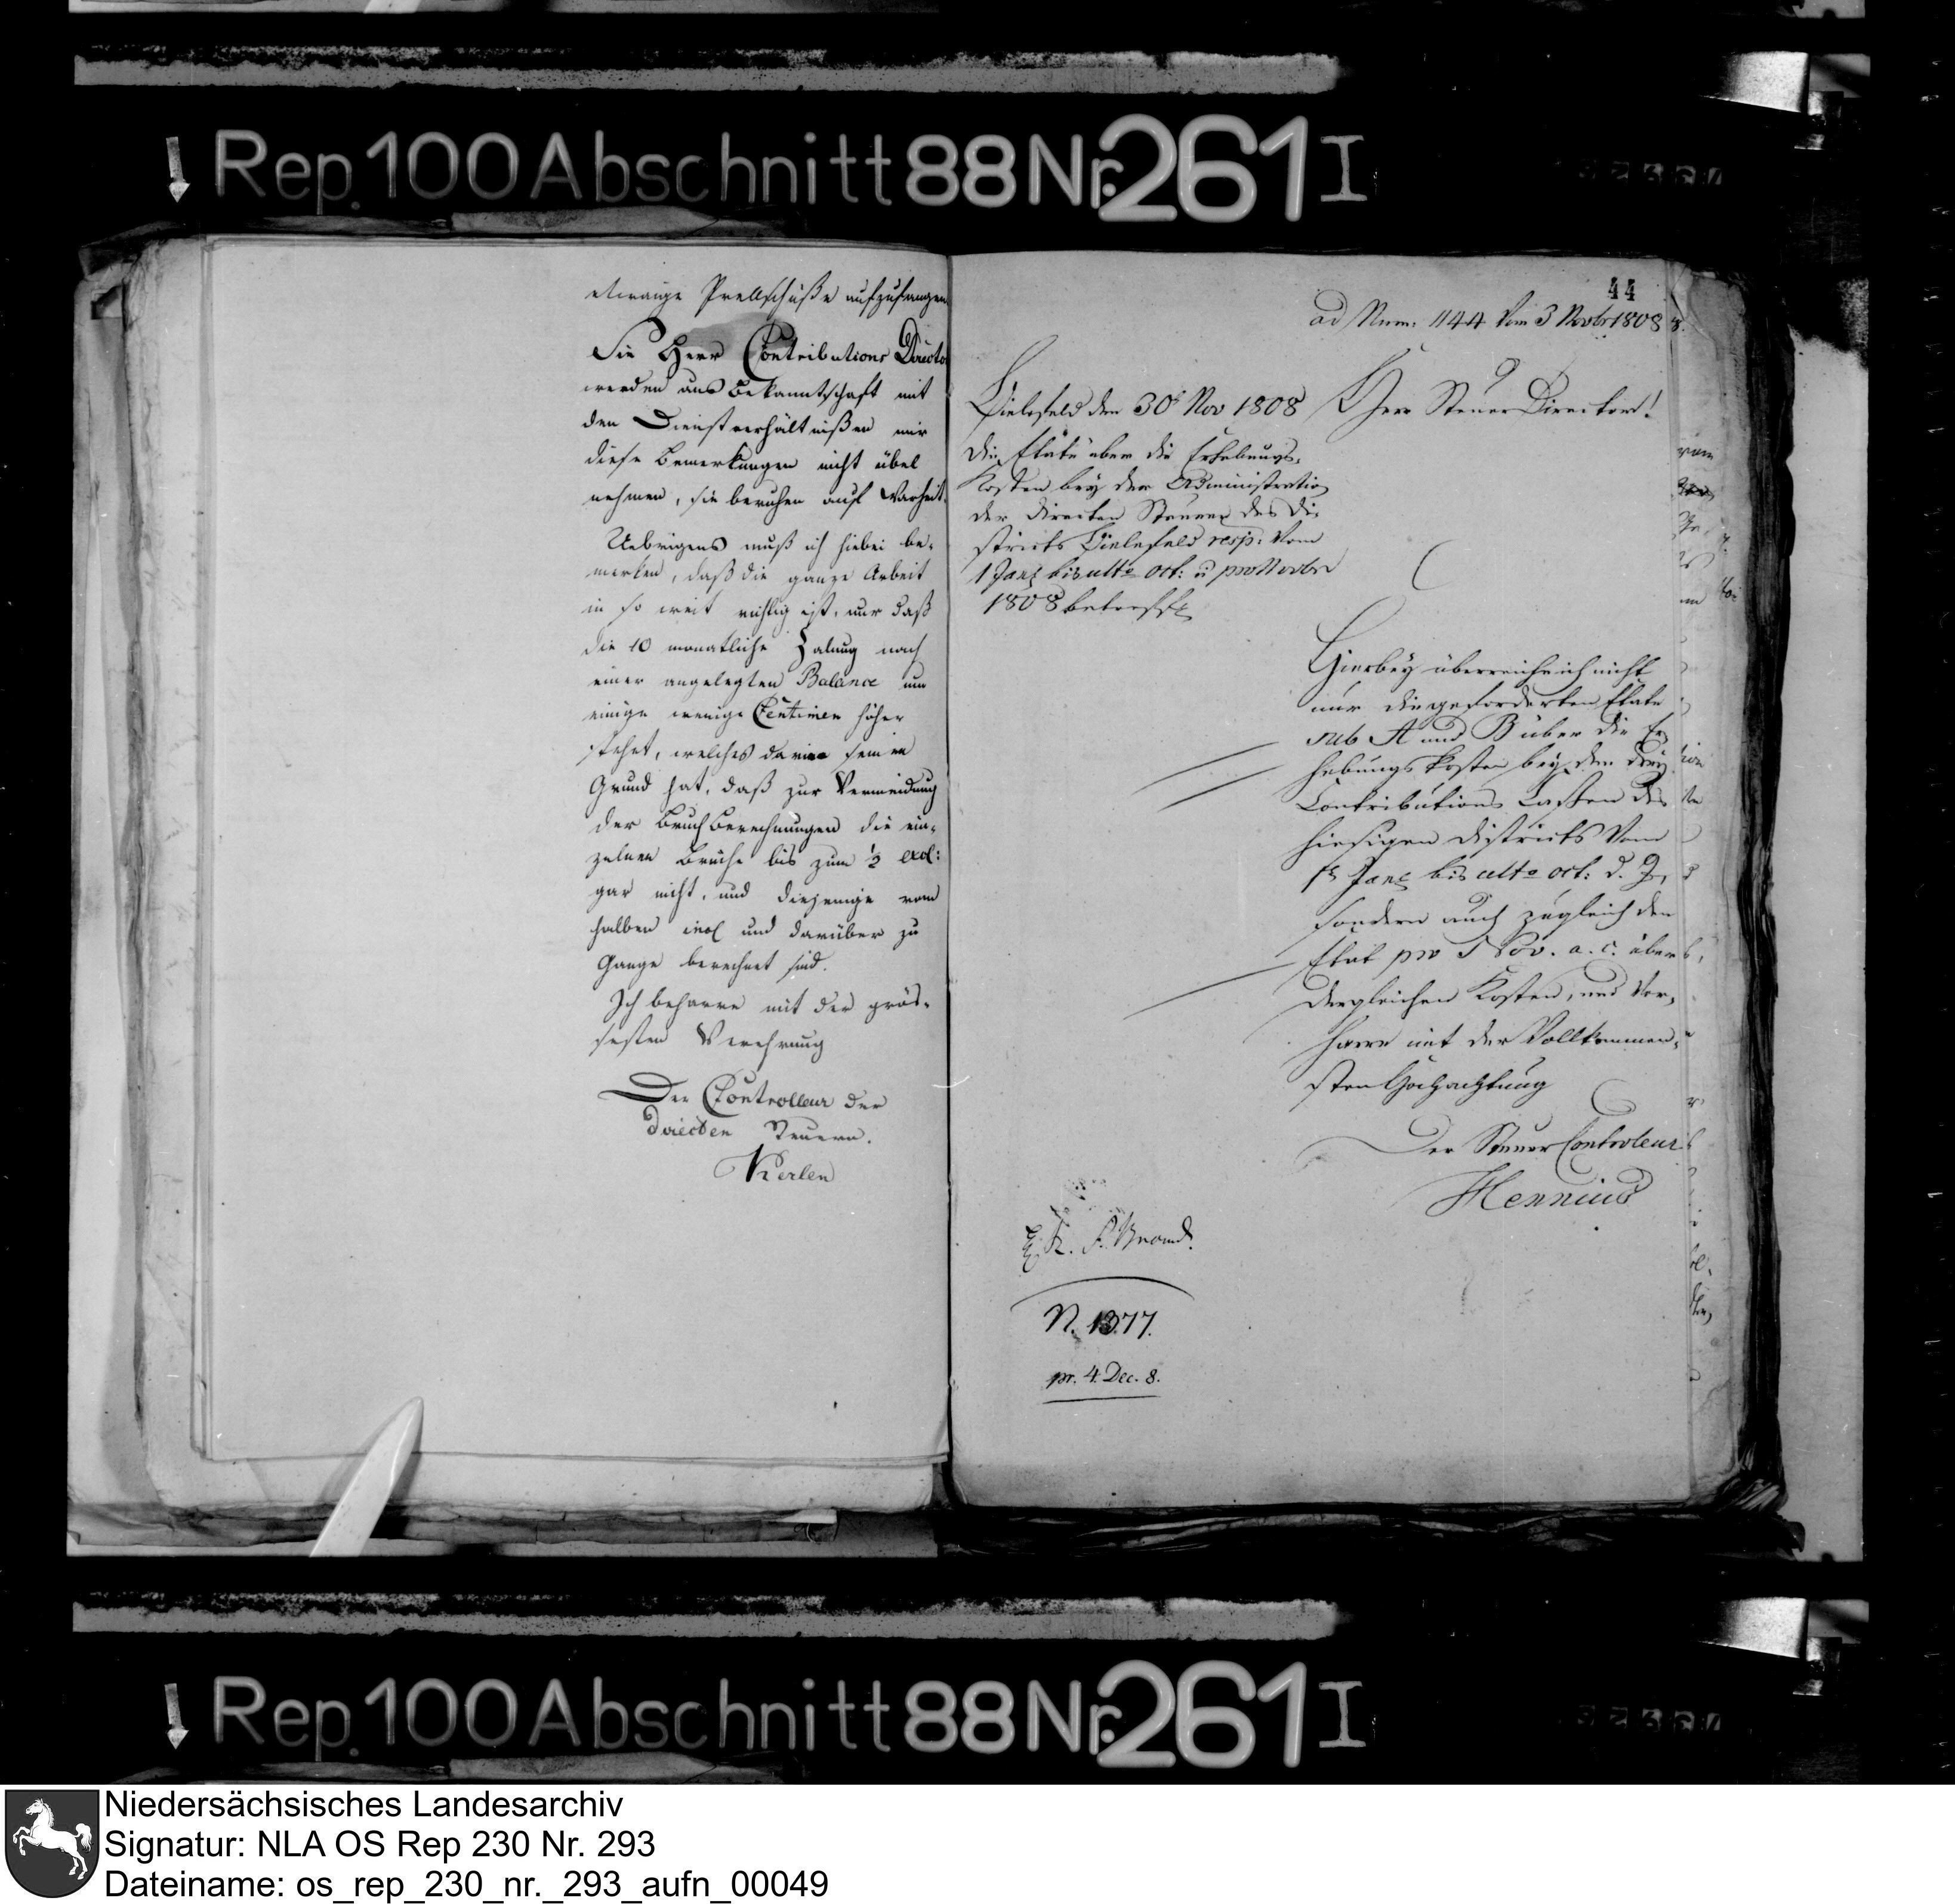 Rep. 100 Abschnitt 88 Nr. 261 I
etwaige Prellschüße aufzufangen
Sie Herr Contributions Directo
werden aus Bekanntschaft mit
den Dienstverhältnißen mir
diese Bemerkungen nicht übel
nehmen, sie beruhen auf Warheit.
Uebrigens muß ich hiebei be-
merken, daß die ganze Arbeit
in so weit richtig ist, nur daß
die 10 monatliche Zalung nach
einer angelegten Balance um
einige wenige Centimen höher
stehet, welches darin seinen
Grund hat, daß zur Vermeidung
der Bruch Berechnungen die ein-
zelnen Brüche bis zum ½ excl:
gar nicht, und diejenige vom
halben incl und darüber zu
Gange berechnet sind.
Ich beharre mit der grös-
sesten Verehrung
Der Controlleur der
directen Steuern.
Kerlen
44
ad Num: 1144 vom 3 Novbr 1808
Bielefeld den 30t Nov 1808
Herr Steuer Director!
die Etats über die Erhebungs-
Kosten bey der Administration
der directen Steuern des Di-
stricts Bielefeld resp: vom
1 Jan bis ulto Oct: u pro Novbr
1808 betreff
Hierbey überreiche ich nicht
nur die geforderten Etats
sub A und B über die Er
hebungs Kosten bey den
Contributions Cassen des
hiesigen Districts vom
1t Jan bis ulto Oct: d. J,
sondern auch zugleich den
Etat pro Nov. a. c. über
dergleichen Kosten, und ver-
harre mit der Vollkommen-
sten Hochachtung
Der Steuer Controleur
Hennius
N. 1377.
pr. 4. Dec. 8.
Rep. 100 Abschnitt 88 Nr. 261 I
Niedersächsisches Landesarchiv
Signatur: NLA OS Rep 230 Nr. 293
Dateiname: os_rep_230_nr._293_aufn_00049